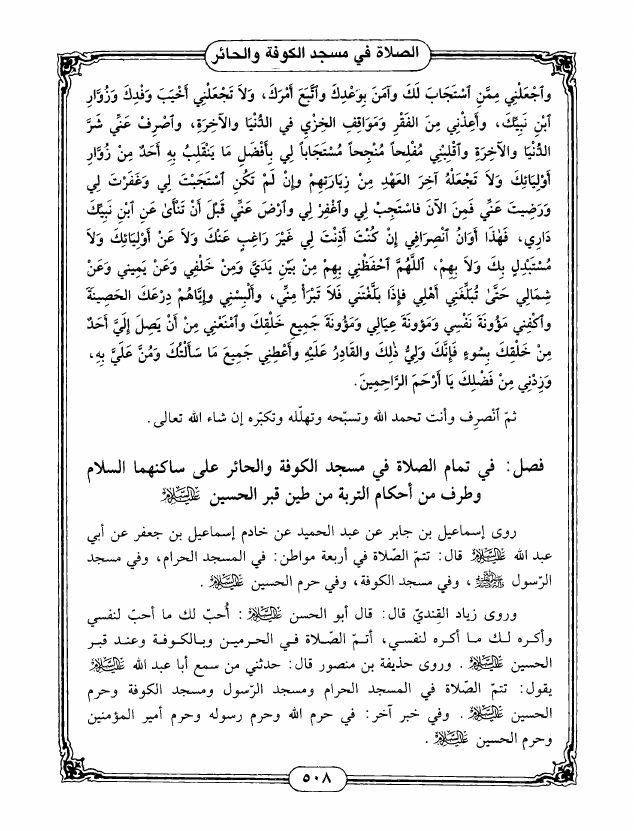 الصلاة في مسجد الكوفة والحائر
وٱجْعَلْنِي مِمَّنِ ٱسْتَجَابَ لَكَ وآمَنَ بِوَعْدِكَ وٱتَّبَعَ أَمْرَكَ، وَلاَ تَجْعَلْنِي أَخْيَبَ وَفْدِكَ وَزُوَّارِ
ٱبْنِ نَبِيِّكَ، وأَعِذْنِي مِنَ الفَقْرِ وَمَوَاقِفِ الخِزْيِ في الدُّنْيَا والآخِرَةِ، وٱصْرِفْ عَنِّي شَرَّ
الدُّنْيَا والآخِرَةِ وٱقْلِبْنِي مُفْلِحاً مُنْجِحاً مُسْتَجَاباً لِي بِأَفْضَلِ مَا يَنْقَلِبُ بِهِ أَحَدٌ مِنْ زُوَّارِ
أَوْلِيَائِكَ وَلاَ تَجْعَلْهُ آخِرَ العَهْدِ مِنْ زِيَارَتِهِمْ وإِنْ لَمْ تَكُنِ ٱسْتَجَبْتَ لِي وَغَفَرْتَ لِي
وَرَضِيتَ عَنِّي فَمِنَ الآنَ فاسْتَجِبْ لِي وٱغْفِرْ لِي وٱرْضَ عَنِّي قَبْلَ أَنْ تَنْأَىٰ عَنِ ٱبْنِ نَبِيِّكَ
دَارِي، فَهٰذَا أَوَانُ ٱنْصِرَافِي إِنْ كُنْتَ أَذِنْتَ لِي غَيْرَ رَاغِبٍ عَنْكَ وَلاَ عَنْ أَوْلِيَائِكَ وَلاَ
مُسْتَبْدِلٍ بِكَ وَلاَ بِهِمْ، اللَّهُمَّ ٱحْفَظْنِي بِهِمْ مِنْ بَيْنِ يَدَيَّ وَمِنْ خَلْفِي وَعَنْ يَمِيني وَعَنْ
شِمَالِي حَتَّىٰ تُبَلِّغَنِي أَهْلِي فإِذَا بَلَّغْتَنِي فَلاَ تَبْرَأْ مِنِّي، وأَلْبِسْنِي وإِيَّاهُمْ دِرْعَكَ الحَصِينَةَ
وٱكْفِنِي مَؤُونَةَ نَفْسِي وَمَؤُونَةَ عِيَالِي وَمَؤُونَةَ جَمِيعِ خَلْقِكَ وٱمْنَعْنِي مِنْ أَنْ يَصِلَ إِلَيَّ أَحَدٌ
مِنْ خَلْقِكَ بِسُوءٍ فَإِنَّكَ وَلِيُّ ذٰلِكَ والقَادِرُ عَلَيْهِ وأَعْطِنِي جَمِيعَ مَا سَأَلْتُكَ وَمُنَّ عَلَيَّ بِهِ،
وَزِدْنِي مِنْ فَضْلِكَ يَا أَرْحَمَ الرَّاحِمِينَ.
ثمّ ٱنْصرِف وأنت تحمد الله وتسبّحه وتهلّله وتكبّره إن شاء الله تعالى.
فصل: في تمام الصلاة في مسجد الكوفة والحائر على ساكنهما السلام
وطرف من أحكام التربة من طين قبر الحسين عليه السلام
روى إسماعيل بن جابر عن عبد الحميد عن خادم إسماعيل بن جعفر عن أبي
عبد الله عليه السلام قال: تتمّ الصّلاة في أربعة مواطن: في المسجد الحرام، وفي مسجد
الرّسول ﷺ، وفي مسجد الكوفة، وفي حرم الحسين عليه السلام.
وروى زياد القِنديّ قال: قال أبو الحسن عليه السلام: أُحبّ لك ما أحبّ لنفسي
وأكره لك ما أكره لنفسي، أتمّ الصّلاة في الحرمين وبالكوفة وعند قبر
الحسين عليه السلام. وروى حذيفة بن منصور قال: حدثني من سمع أبا عبد الله عليه السلام
يقول: تتمّ الصّلاة في المسجد الحرام ومسجد الرّسول ومسجد الكوفة وحرم
الحسين عليه السلام. وفي خبر آخر: في حرم الله وحرم رسوله وحرم أمير المؤمنين
وحرم الحسين عليه السلام.
٥٠٨